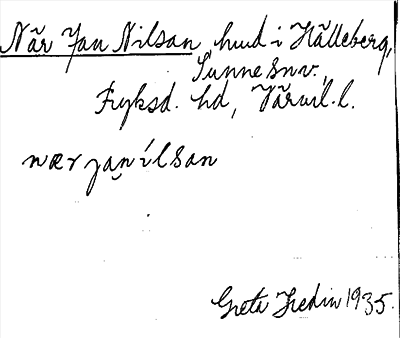 När Jan Nilsan, hud i Hälleberg,
Sunne snv.,
Fryksd. hd, Värml. l.
nær jan ílsan
Greta Hedin 1935.